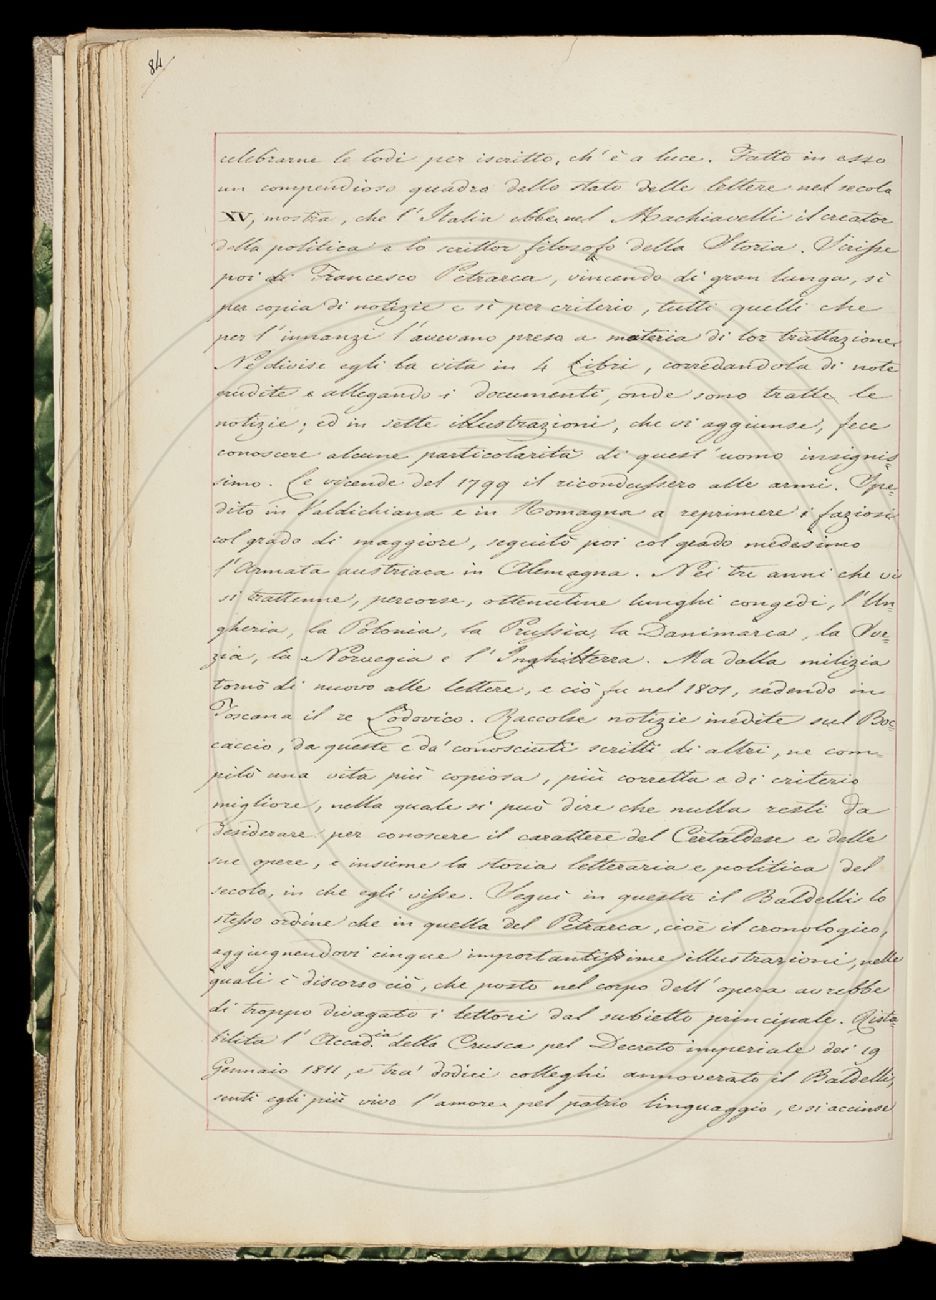 84
celebrarne le lodi per iscritto, ch'è a luce. Fatto in esso
un compendioso quadro dello stato delle lettere nel secolo
XV, mostra, che l'Italia ebbe nel Machiavelli il creator
della politica e lo scrittor filosofo della Storia. Scrisse
poi di Francesco Petrarca, vincendo di gran lunga, sì
per copia di notizie e sì per criterio, tutti quelli che
per l'innanzi l'avevano preso a materia di lor trattazione.
Ne divise egli la vita in 4 Libri, corredandola di note
erudite e allegando i documenti, onde sono tratte le
notizie; ed in sette illustrazioni, che vi aggiunse, fece
conoscere alcune particolarità di quest'uomo insignis=
simo. Le vicende del 1799 il ricondussero alle armi. Spe=
dito in Valdichiana e in Romagna a reprimere i faziosi
col grado di maggiore, seguitò poi col grado medesimo
l'Armata austriaca in Alemagna. Nei tre anni che vi
si trattenne, percorse, ottenutine lunghi congedi, l'Un=
gheria, la Polonia, la Prussia, la Danimarca, la Sve=
zia, la Norvegia e l'Inghilterra. Ma dalla milizia
tornò di nuovo alle lettere, e ciò fu nel 1801, sedendo in
Toscana il re Lodovico. Raccolse notizie inedite sul Boc=
caccio, da queste e da' conosciuti scritti di altri, ne com=
pilò una vita più copiosa, più corretta e di criterio
migliore, nella quale si può dire che nulla resti da
desiderare per conoscere il carattere del Certaldese e delle
sue opere, e insieme la storia letteraria e politica del
secolo, in che egli visse. Seguì in questa il Baldelli lo
stesso ordine che in quella del Petrarca, cioè il cronologico,
aggiugnendovi cinque importantissime illustrazioni, nelle
quali è discorso ciò, che posto nel corpo dell'opera avrebbe
di troppo divagato i lettori dal subietto principale. Rista=
bilita l'Accad.ia della Crusca pel Decreto imperiale dei 19
Gennaio 1811, e tra' dodici colleghi annoverato il Baldelli,
sentì egli più vivo l'amore pel patrio linguaggio, e si accinse